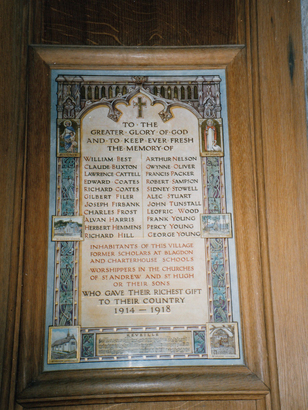 TO · THE
GREATER · GLORY · OF · GOD
AND · TO · KEEP · EVER · FRESH
THE · MEMORY · OF
WILLIAM BEST
CLAUDE BUXTON
LAWRENCE CATTELL
EDWARD COATES
RICHARD COATES
GILBERT FILER
JOSEPH FIRBANK
CHARLES FROST
ALVAN HARRIS
HERBERT HEMMENS
RICHARD HILL
ARTHUR NELSON
GWYNNE OLIVER
FRANCIS PACKER
ROBERT SAMPSON
SIDNEY STOWELL
ALEC STUART
JOHN TUNSTALL
LEOFRIC WOOD
FRANK YOUNG
PERCY YOUNG
GEORGE YOUNG
INHABITANTS OF THIS VILLAGE
FORMER SCHOLARS AT BLAGDON
AND CHARTERHOUSE SCHOOLS
WORSHIPPERS IN THE CHURCHES
OF ST ANDREW AND ST HUGH
OR THEIR SONS
WHO GAVE THEIR RICHEST GIFT
TO THEIR COUNTRY
1914 — 1918